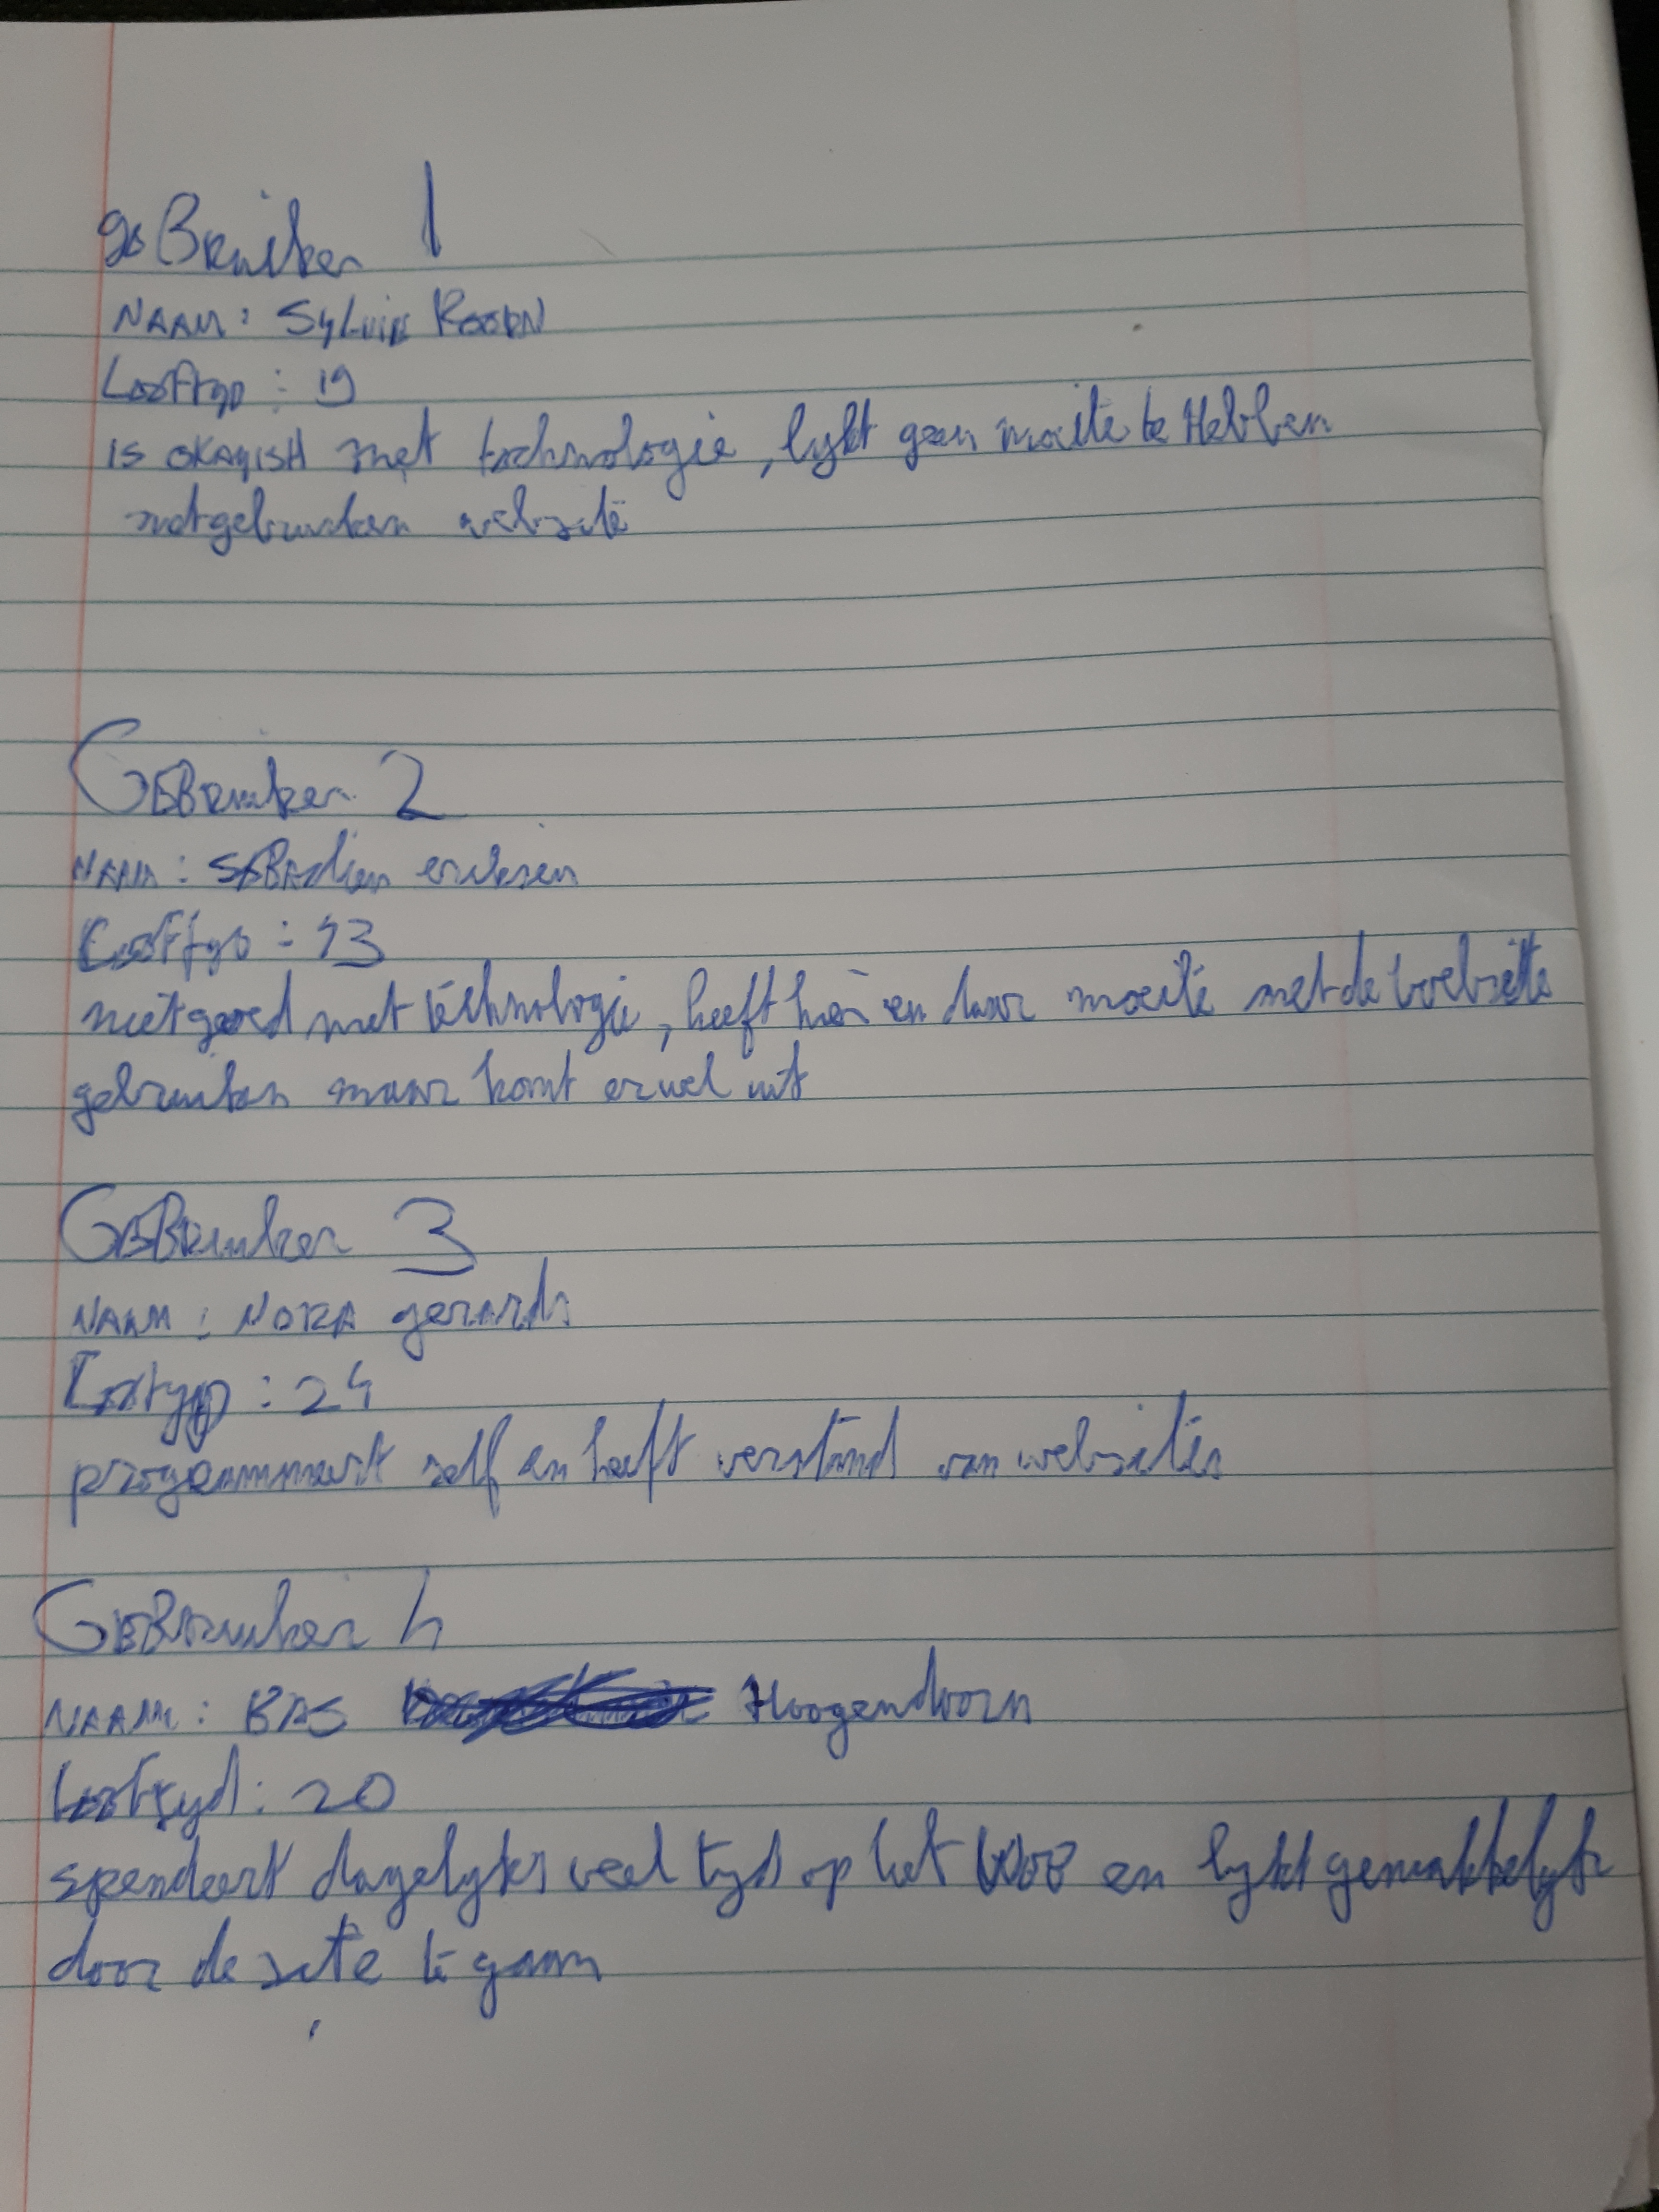 geBruiker 1
NAAM: Sylvie
Leeftyd: 19
is okayish met technologie, lykt geen moeite te Hebben
met gebruiken website
GEBruiker 2
NAAM: SEBAstien eriksen
Leeftyd: 13
niet goed met technologie, heeft hier en daar moeite met de website
gebruiken maar komt er wel uit
GEBruiker 3
NAAM: NORA gerards
Leeftyd: 24
programmeert self en heeft verstand van websites
GEBruiker 4
NAAM: BAS Hoogendoorn
Leeftyd: 20
spendeert dagelyks veel tyd op het WEB en lykt gemakkelyk
door de site te gaan